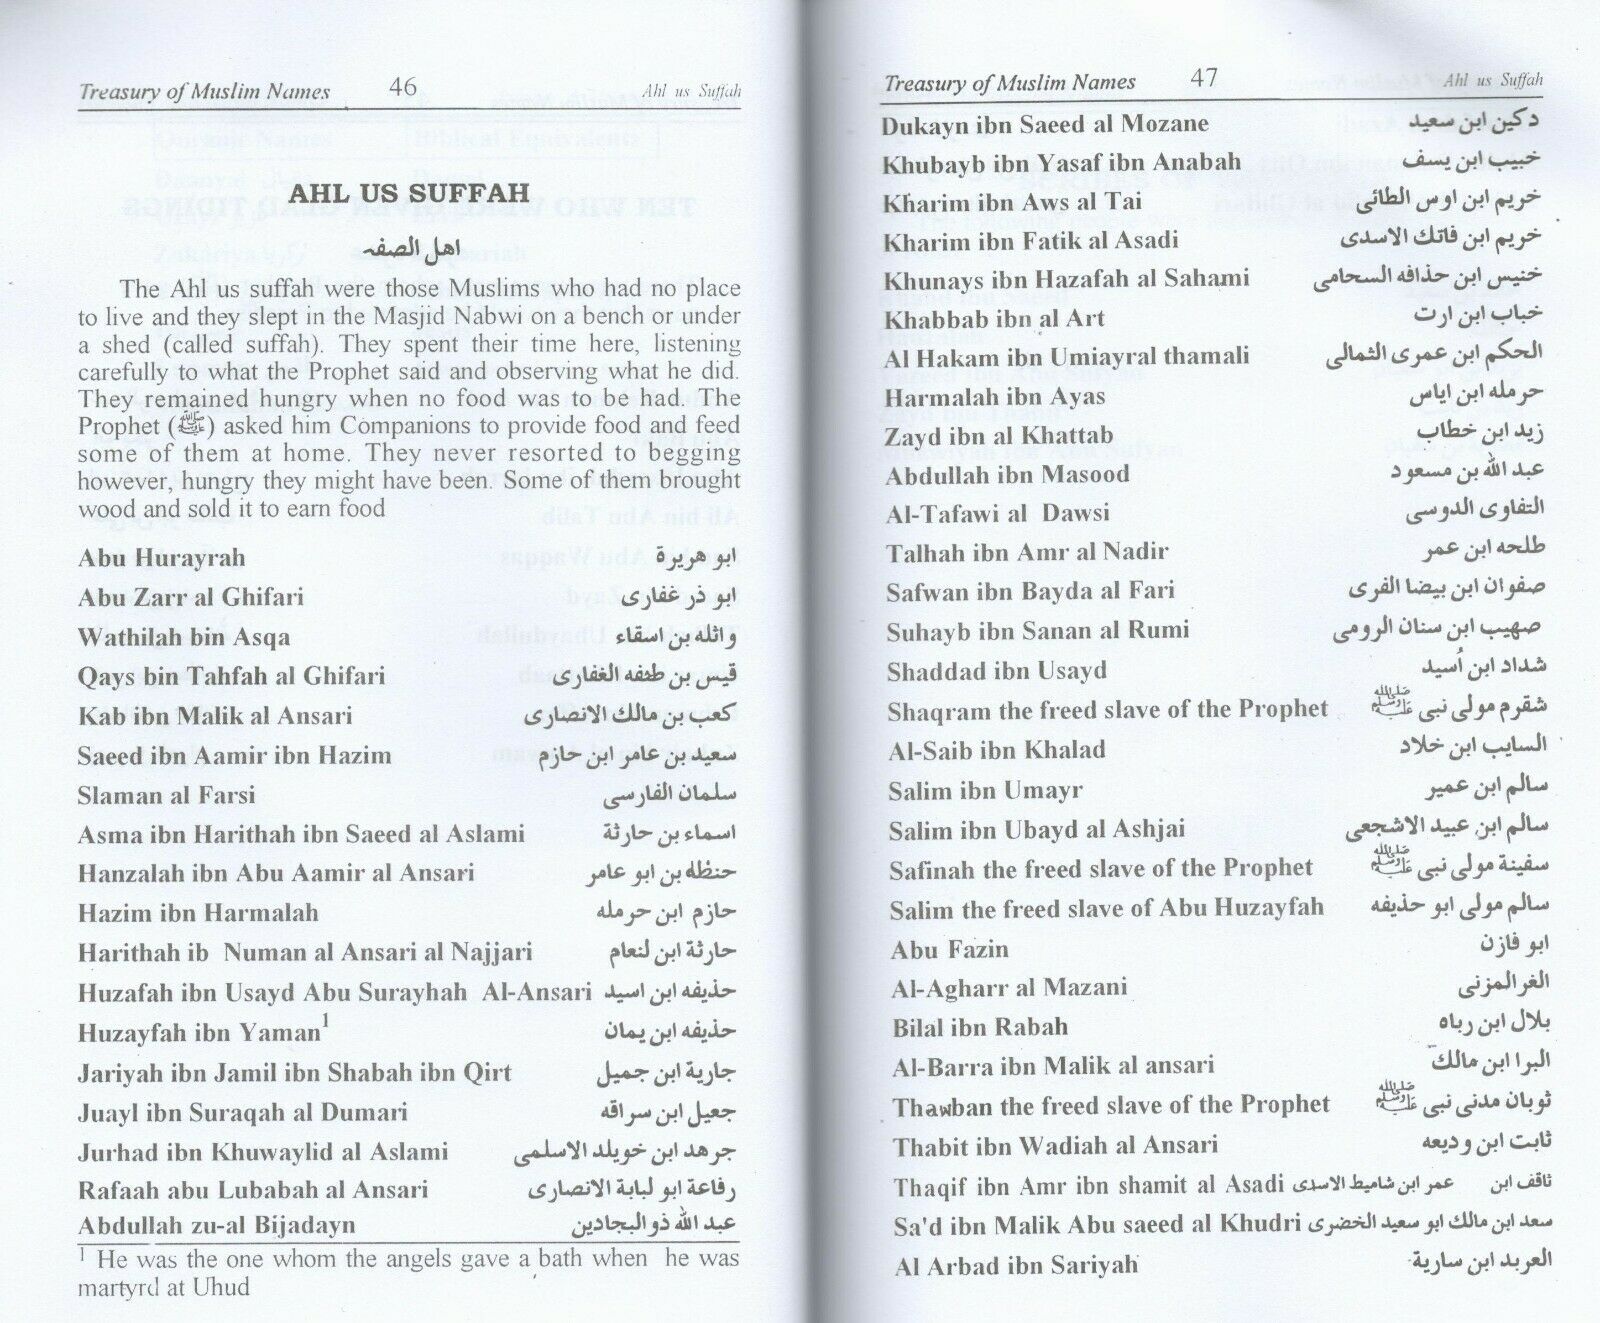 Treasury of Muslim Names 46 Ahl us Suffah
AHL US SUFFAH
اهل الصفہ
The Ahl us suffah were those Muslims who had no place
to live and they slept in the Masjid Nabwi on a bench or under
a shed (called suffah). They spent their time here, listening
carefully to what the Prophet said and observing what he did.
They remained hungry when no food was to be had. The
Prophet (ﷺ) asked him Companions to provide food and feed
some of them at home. They never resorted to begging
however, hungry they might have been. Some of them brought
wood and sold it to earn food
Abu Hurayrah ابو هريرة
Abu Zarr al Ghifari ابو ذر غفاری
Wathilah bin Asqa واثله بن اسقاء
Qays bin Tahfah al Ghifari قیس بن طئفه الغفاری
Kab ibn Malik al Ansari كعب بن مالك الانصاری
Saeed ibn Aamir ibn Hazim سعید بن عامر ابن حازم
Slaman al Farsi سلمان الفارسی
Asma ibn Harithah ibn Saeed al Aslami اسماء بن حارثة
Hanzalah ibn Abu Aamir al Ansari حنظله بن ابو عامر
Hazim ibn Harmalah حازم ابن حرمله
Harithah ib Numan al Ansari al Najjari حارثة ابن لنعام
Huzafah ibn Usayd Abu Surayhah Al-Ansari حذیفه ابن اسید
Huzayfah ibn Yaman1 حذیفه ابن یمان
Jariyah ibn Jamil ibn Shabah ibn Qirt جارية ابن جمیل
Juayl ibn Suraqah al Dumari جعیل ابن سراقه
Jurhad ibn Khuwaylid al Aslami جرهد ابن خویلد الاسلمی
Rafaah abu Lubabah al Ansari رفاعة ابو لبابة الانصاری
Abdullah zu-al Bijadayn عبد الله ذو البجادین
1 He was the one whom the angels gave a bath when he was
martyrd at Uhud
Treasury of Muslim Names 47 Ahl us Suffah
Dukayn ibn Saeed al Mozane دکین ابن سعید
Khubayb ibn Yasaf ibn Anabah خبیب ابن یسف
Kharim ibn Aws al Tai خریم ابن اوس الطائی
Kharim ibn Fatik al Asadi خریم ابن فاتك الاسدی
Khunays ibn Hazafah al Sahami خنیس ابن حذافه السحامی
Khabbab ibn al Art خباب ابن ارت
Al Hakam ibn Umiayral thamali الحکم ابن عمری الثمالی
Harmalah ibn Ayas حرمله ابن ایاس
Zayd ibn al Khattab زید ابن خطاب
Abdullah ibn Masood عبد الله بن مسعود
Al-Tafawi al Dawsi التفاوی الدوسی
Talhah ibn Amr al Nadir طلحه ابن عمر
Safwan ibn Bayda al Fari صفوان ابن بیضا الفری
Suhayb ibn Sanan al Rumi صهیب ابن سنان الرومی
Shaddad ibn Usayd شداد ابن اُسید
Shaqram the freed slave of the Prophet شقرم مولی نبی ﷺ
Al-Saib ibn Khalad السایب ابن خلاد
Salim ibn Umayr سالم ابن عمیر
Salim ibn Ubayd al Ashjai سالم ابن عبید الاشجعی
Safinah the freed slave of the Prophet سفینة مولی نبی ﷺ
Salim the freed slave of Abu Huzayfah سالم مولی ابو حذیفه
Abu Fazin ابو فازن
Al-Agharr al Mazani الغر المزنی
Bilal ibn Rabah بلال ابن رباه
Al-Barra ibn Malik al ansari البرا ابن مالك
Thawban the freed slave of the Prophet ثوبان مدنی نبی ﷺ
Thabit ibn Wadiah al Ansari ثابت ابن ودیعه
Thaqif ibn Amr ibn shamit al Asadi ثاقف ابن عمر ابن شامیط الاسدی
Sa'd ibn Malik Abu saeed al Khudri سعد ابن مالك ابو سعید الخضری
Al Arbad ibn Sariyah العربد ابن ساریة